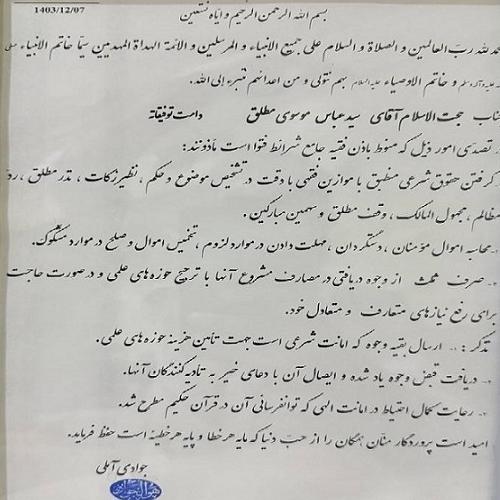 1403/12/07
بسم الله الرحمن الرحیم و ایاه نستعین
لله ربّ العالمین و الصلاة و السلام علی جمیع الانبیاء و المرسلین و الائمة الهداة المهدیین سیّما خاتم الانبیاء
و خاتم الاوصیاء علیه السلام بهم نتولی و من اعدائهم نتبرء إلی الله.
جناب حجت الاسلام آقای سید عباس موسوی مطلق دامت توفیقاته
تصدّی امور ذیل که منوط باذن فقیه جامع شرائط فتوا است مأذونند:
گرفتن حقوق شرعی مطبق با موازین فقهی با دقت در تشخیص موضوع و حکم، نظیر زکات، نذر مطلق، ردّ
مظالم، مجهول المالک، وقف مطلق و سهمین مبارکین.
محاسبه اموال مؤمنان، دستگردان، مهلت دادن در موارد لزوم، تخمیس اموال و صلح در موارد مشکوک.
صرف ثلث از وجوه دریافتی در مصارف مشروع آنها با ترجیح حوزه‌های علمی و در صورت حاجت
برای رفع نیازهای متعارف و متعادل خود.
تذکر: ۱. ارسال بقیه وجوه که امانت شرعی است جهت تأمین هزینه حوزه‌های علمی.
دریافت قبض وجوه یاد شده و ایصال آن با دعای خیر به تأدیه کنندگان آنها.
رعایت کمال احتیاط در امانت الهی که توانفرسائی آن در قرآن حکیم مطرح شد.
امید است پروردگار منان همگان را از حبّ دنیا که مایه هر خطا و پایه هر خطیئه است حفظ فرماید.
جوادی آملی